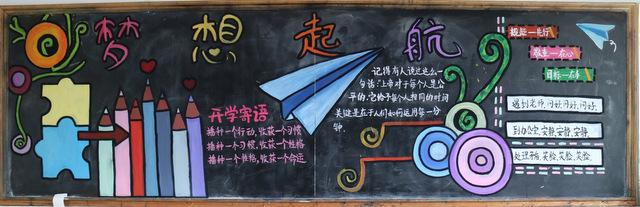 梦想起航
开学寄语
播种一个行动,收获一个习惯
播种一个习惯,收获一个性格
播种一个性格,收获一个命运
记得有人说过这么一
句话:上帝对于每个人是公
平的,它给予每个人相同的时间
关键是在于人们如何运用每一分
钟.
敬业一在心
目标一在手
遇到老师,问好,问好,问好.
到办公室,安静,安静,安静.